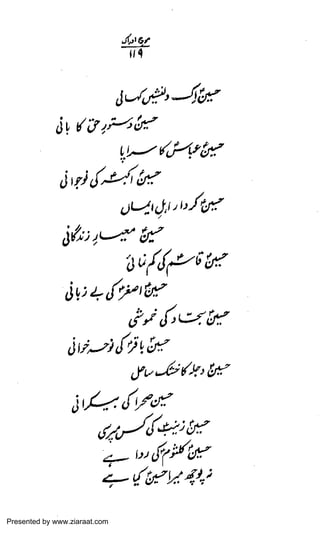 موج ادراک
۱۱۹
حسینؑ اک دلنشیں کہانی
حسینؑ دستورِ حق کا بانی
حسینؑ عباسؑ کا سراپا
حسینؑ اکبرؑ کی نوجوانی
حسینؑ کردارِ اہلِ ایماں
حسینؑ معیارِ زندگانی
حسینؑ قاسمؑ کی کم نمائی
حسینؑ اصغرؑ کی بے زبانی
حسینؑ سجادؑ کی خموشی
حسینؑ باقرؑ کی نوحہ خوانی
حسینؑ دجلہ کا خشک ساحل
حسینؑ صحرا کی بیکرانی
حسینؑ زینبؑ کی کسمپرسی
حسینؑ کلثومؑ کی ردا ہے
نہ پوچھ میرا حسینؑ کیا ہے
Presented by www.ziaraat.com